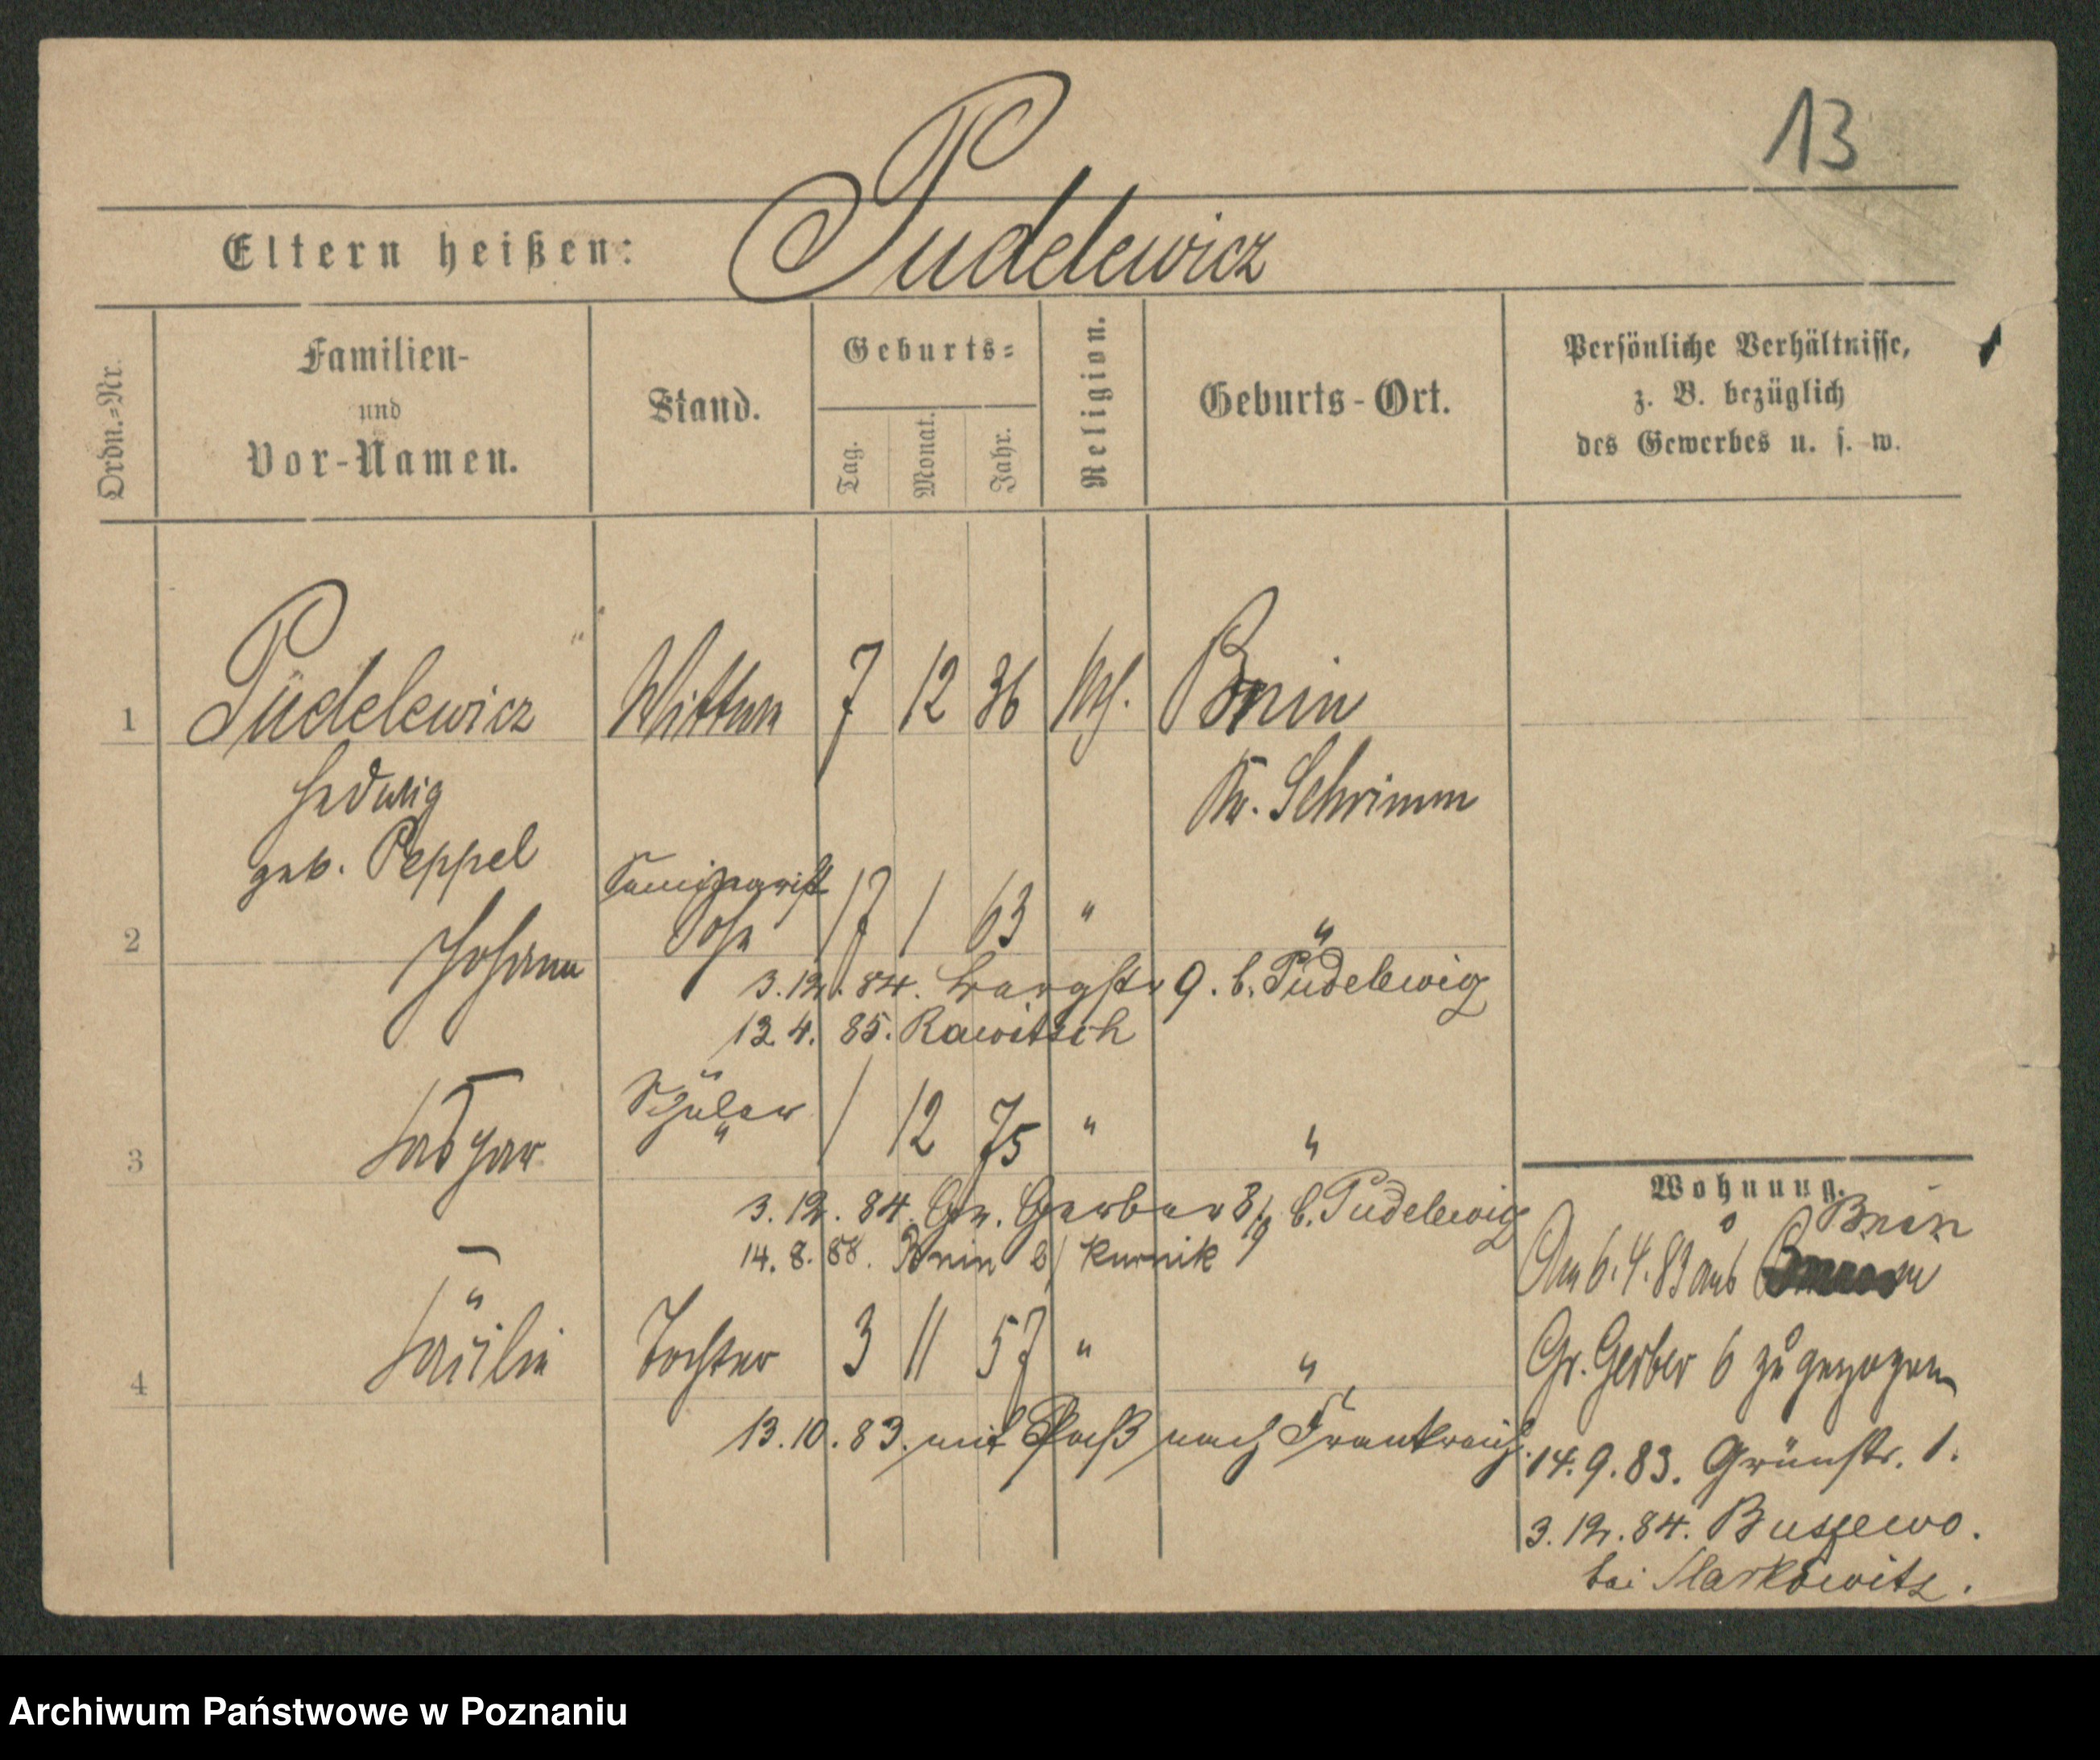 13
Eltern heißen: Pudelewicz
Ordn.=Nr.
Familien-
und
Vor-Namen.
Stand.
Geburts=
Tag.
Monat.
Jahr.
Religion.
Geburts-Ort.
Persönliche Verhältnisse,
z. B. bezüglich
des Gewerbes u. s. w.
1 Pudelewicz Wittwe 7 12 36 Bnin
Hedwig Kr. Schrimm
geb. Peppel
2 Johann Sohn 17 1 63 " "
3.12.84. 9. b. Pudelewig
13.4.85. Rawitsch
3 Schüler " 1 12 75 " "
3.12.84. Gr. Gerber 8/9 b. Pudelewig
14.8.88. Bnin b/ Kurnik
4 Cäcilie Tochter 3 11 57 " "
13.10.83. mit Paß nach Frankreich.
Wohnung.
Bnin
Am 6.4.83 aus
Gr. Gerber 6 zugezogen
14.9.83. Grünstr. 1.
3.12.84. Buszewo.
bei Markowitz.
Archiwum Państwowe w Poznaniu